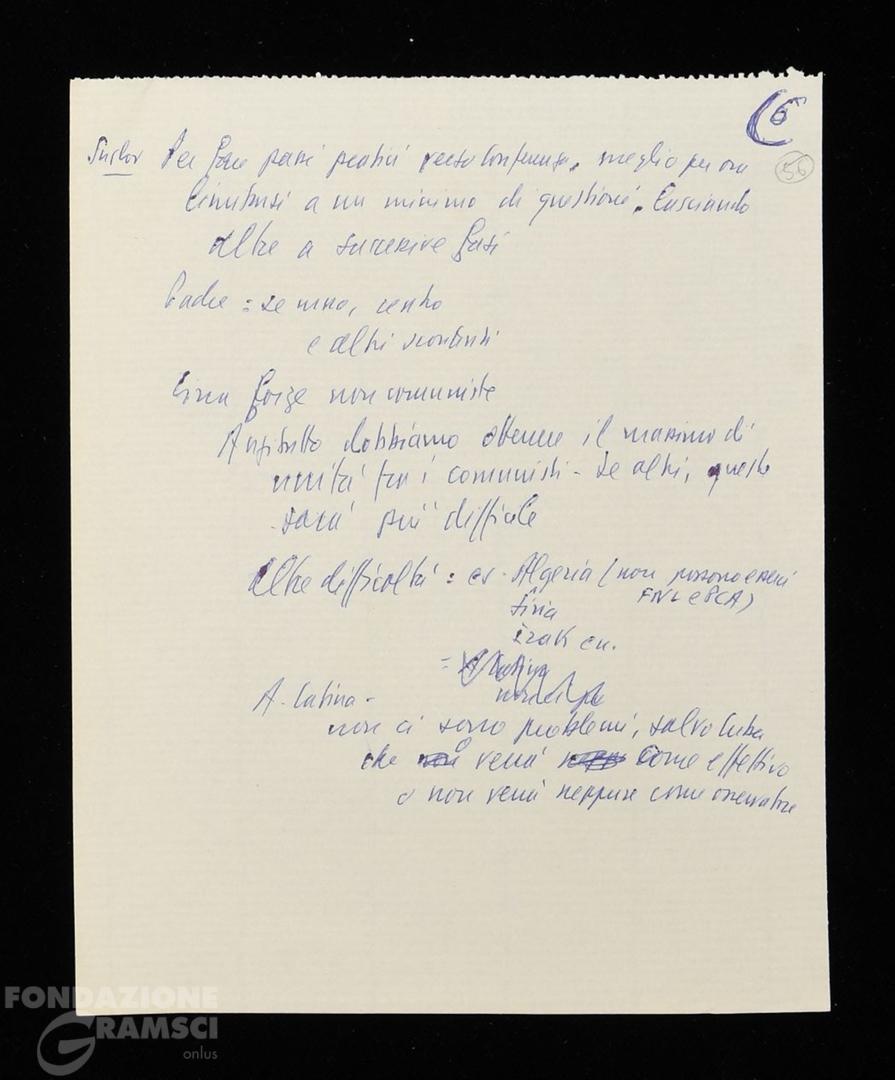 6
56
Suslov Per fare passi pratici verso Conferenza, meglio per ora
limitarsi a un minimo di questioni, lasciando
altre a successive fasi
e altri
Circa forze non comuniste
Anzitutto dobbiamo ottenere il massimo di
unità fra i comunisti - Se altri, questo
sarà più difficile
Altre difficoltà: es. Algeria (non possono esserci
FNL e PCA)
Siria
Irak ecc.
A. Latina -
non ci sono problemi, salvo Cuba
che o verrà come effettivo
o non verrà neppure come osservatore
FONDAZIONE
GRAMSCI
onlus